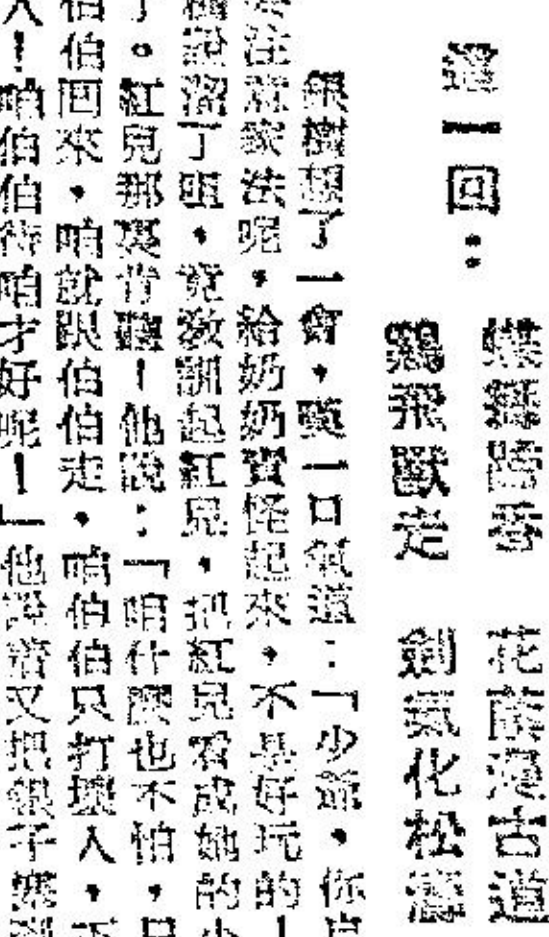 這一回：
蝶舞 花蔭覆古道
鷄飛獸走 劍氣化松濤
銀樹想了一會，嘆一口氣道：「少爺，你
注 家法呢，給奶奶責怪起來，不是好玩的！
了咀，竟教訓起紅兒，把紅兒看成她的小
了。紅兒那裏肯聽！他說：「咱什麼也不怕，只
伯伯回來，咱就跟伯伯走。咱伯伯只打壞人，不
人！咱伯伯待咱才好呢！」他說着又把銀子塞到